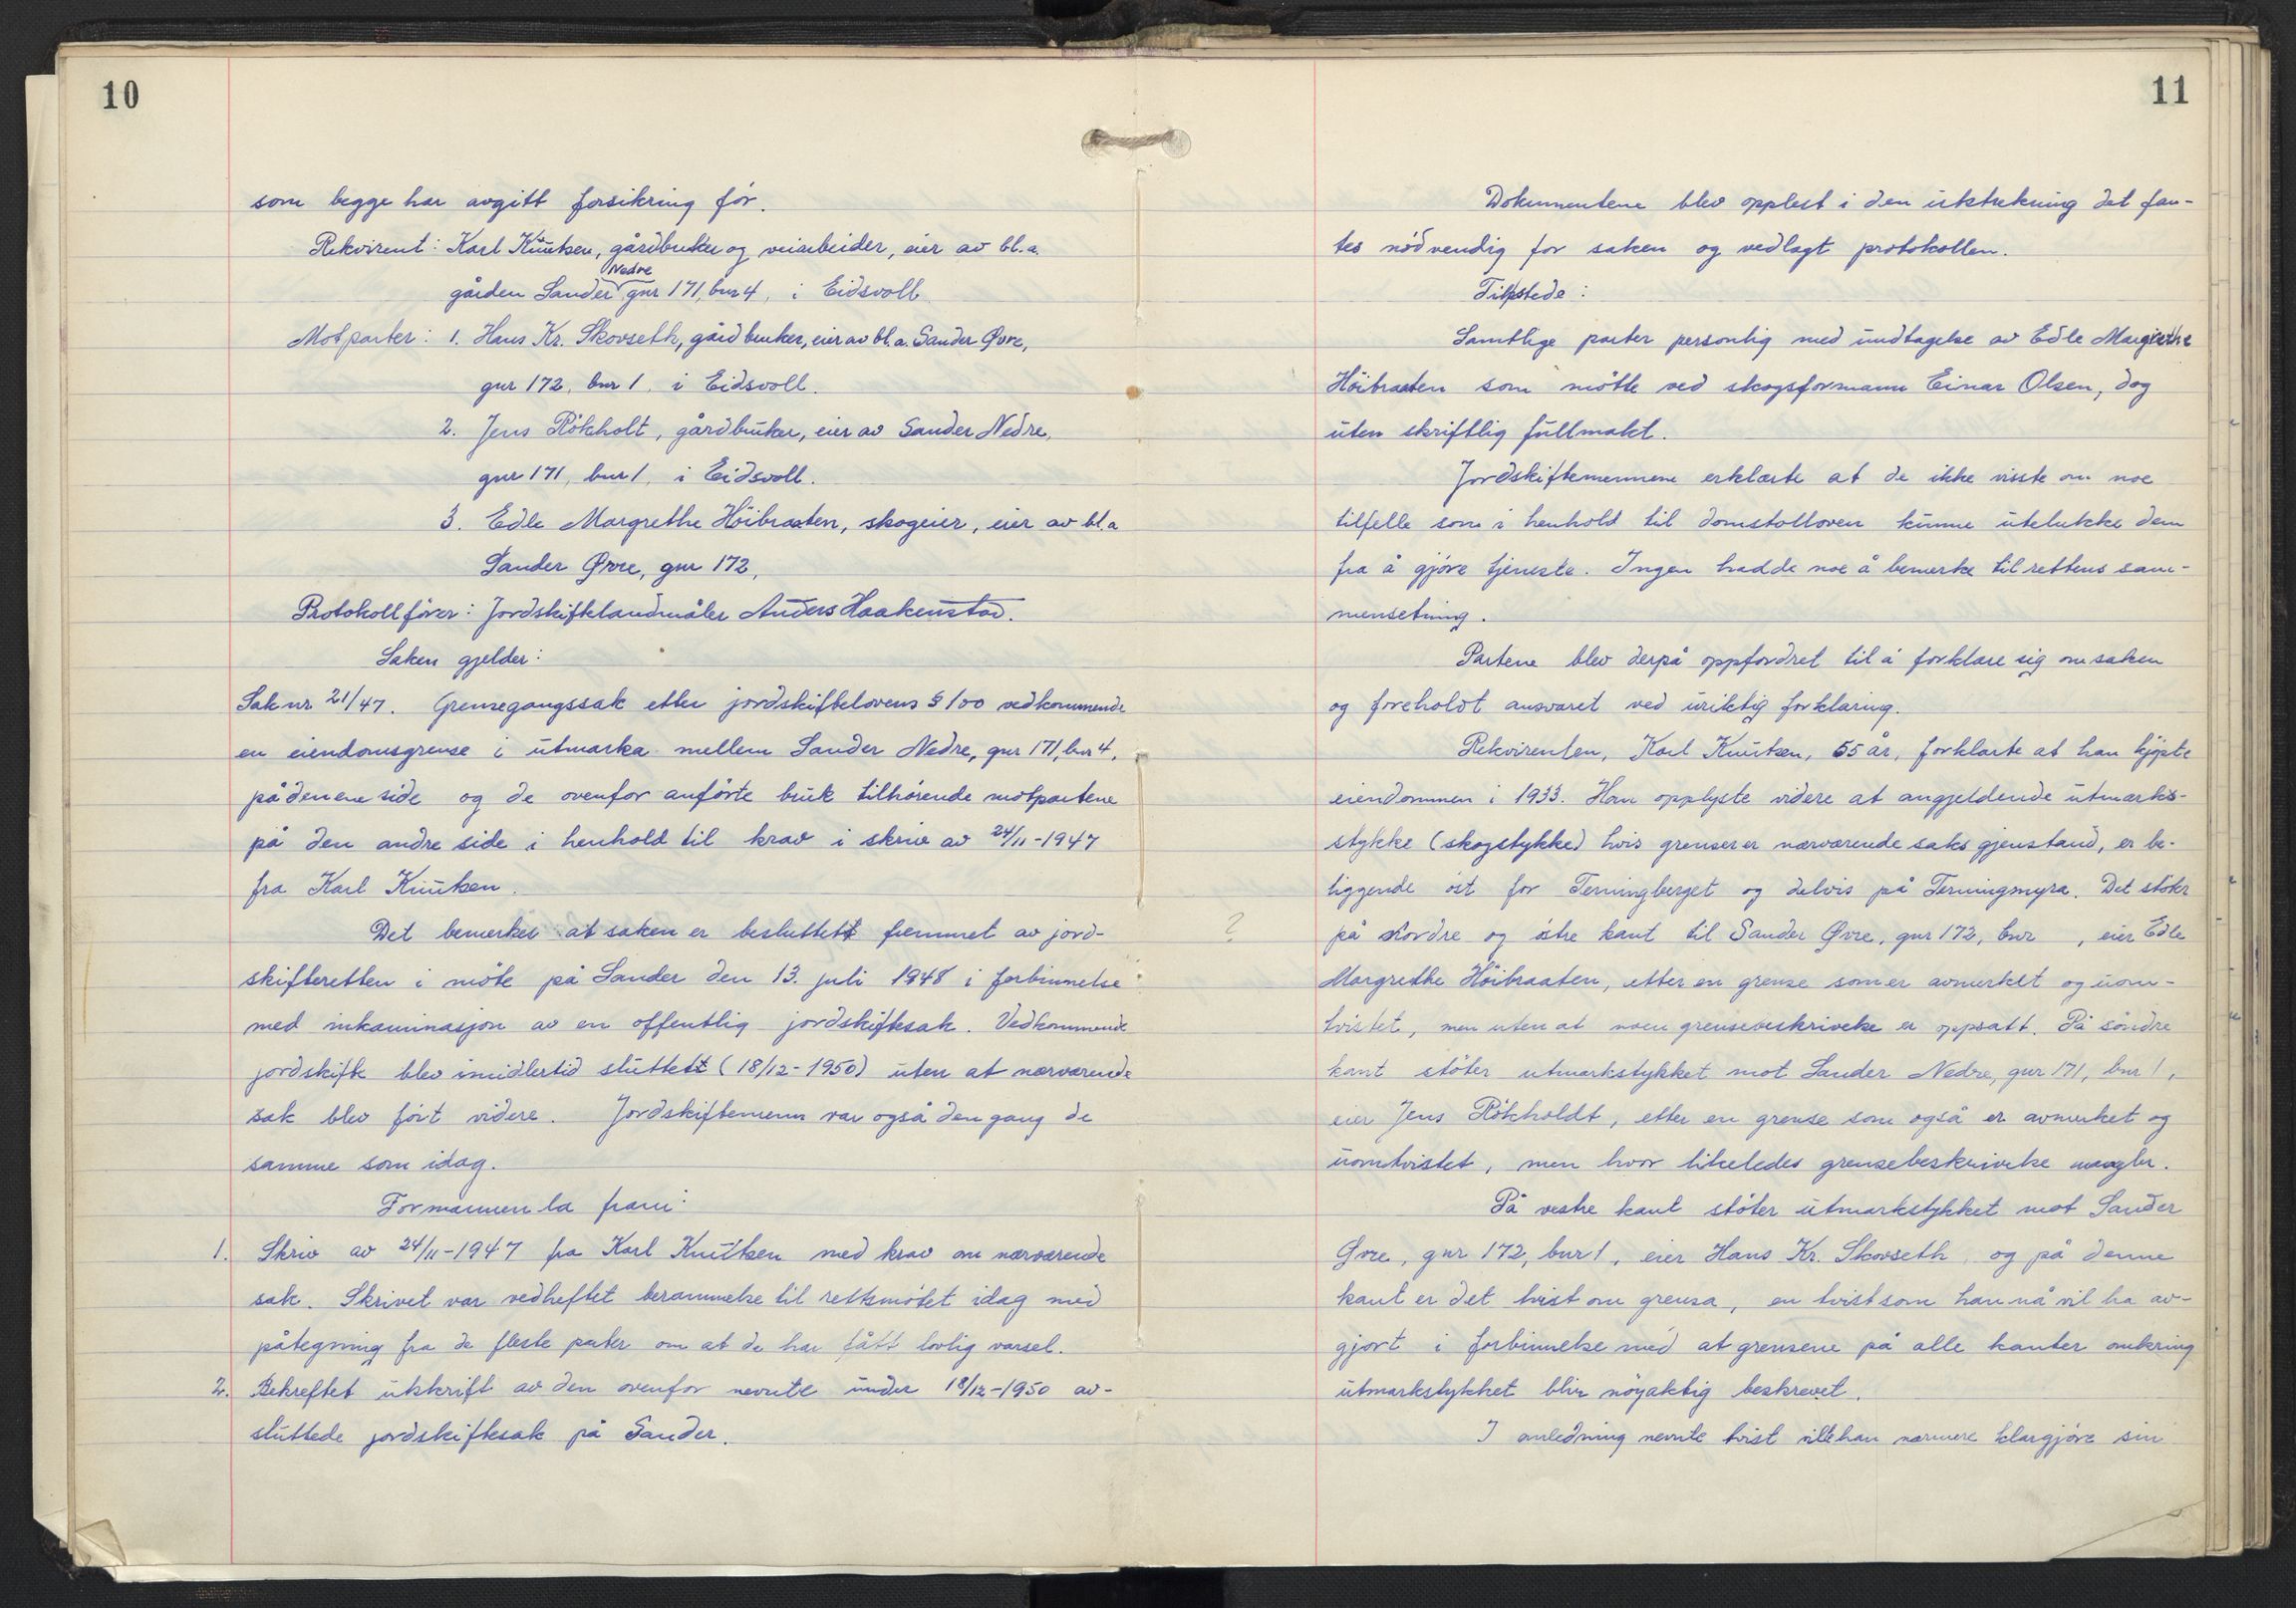 10
som begge har avgitt forsikring før.
Rekvirent: Karl Knutsen, gårdbruker og veiarbeider, eier av bl.a.
Nedre
gården Sander gnr 171, bnr 4, i Eidsvoll
Motparter: 1. Hans Kr. Skovseth, gårdbruker, eier av bl.a. Sander Øvre,
gnr 172, bnr 1, i Eidsvoll.
2. Jens Rökholt, gårdbruker, eier av Sander Nedre,
gnr 171, bnr 1, i Eidsvoll.
3. Edle Margrethe Höibraaten, skogeier, eier av bl.a
Sander Øvre, gnr 172,
Protokollfører: Jordskiftelandmåler Anders Haakenstad.
Saken gjelder:
Sak nr 21/47. Grensegangssak etter jordskiftelovens § 100 vedkommende
en eiendomsgrense i utmarka mellem Sander Nedre, gnr 171, bnr 4,
på den ene side og de ovenfor anførte bruk tilhørende motpartene
på den andre side i henhold til krav i skriv av 24/11-1947
fra Karl Knutsen.
Det bemerkes at saken er besluttett fremmet av jord-
skifteretten i møte på Sander den 13. juli 1948 i forbinnelse
med inkaminasjon av en offentlig jordskiftesak. Vedkommende
jordskifte blev imidlertid sluttett (18/12-1950) uten at nærværende
sak blev ført videre. Jordskiftemenn var også den gang de
samme som idag.
Formannen la fram:
1. Skriv av 24/11-1947 fra Karl Knutsen med krav om nærværende
sak. Skrivet var vedheftet berammelse til rettsmøtet idag med
påtegning fra de fleste parter om at de har fått lovlig varsel.
2. Bekreftet utskrift av den ovenfor nevnte under 18/12-1950 av-
sluttede jordskiftesak på Sander.
11
Dokumentene blev opplest i den utstrekning det fan-
tes nødvendig for saken og vedlagt protokollen.
Tilstede:
Samtlige parter personlig med undtagelse av Edle Margrethe
Höibraaten som møtte ved skogsformann Einar Olsen, dog
uten skriftlig fullmakt.
Jordskiftemennene erklærte at de ikke visste om noe
tilfelle som i henhold til domstolloven kunne utelukke dem
fra å gjøre tjeneste. Ingen hadde noe å bemerke til rettens sam-
mensetning.
Partene blev derpå oppfordret til å forklare sig om saken
og foreholdt ansvaret ved uriktig forklaring.
Rekvirenten, Karl Knutsen, 55 år, forklarte at han kjøpte
eiendommen i 1933. Han opplyste videre at angjeldende utmarks-
stykke (skogstykke) hvis grenser er nærværende saks gjenstand, er be-
liggende øst for Terningberget og delvis på Terningmyra. Det støter
?
på nordre og østre kant til Sander Øvre, gnr 172, bnr , eier Edle
Margrethe Höibraaten, etter en grense som er avmerket og uom-
tvistet, men uten at noen grensebeskrivelse er oppsatt. På søndre
kant støter utmarkstykket mot Sander Nedre, gnr 171, bnr 1,
eier Jens Rökholdt, etter en grense som også er avmerket og
uomtvistet, men hvor likeledes grensebeskrivelse mangler.
På vestre kant støter utmarkstykket mot Sander
Øvre, gnr 172, bnr 1, eier Hans Kr. Skovseth og på denne
kant er det tvist om grensa, en tvist som han nå vil ha av-
gjort i forbinnelse med at grensene på alle kanter omkring
utmarkstykket blir nøyaktig beskrevet.
I anledning nevnte tvist ville han nærmere klargjøre sin